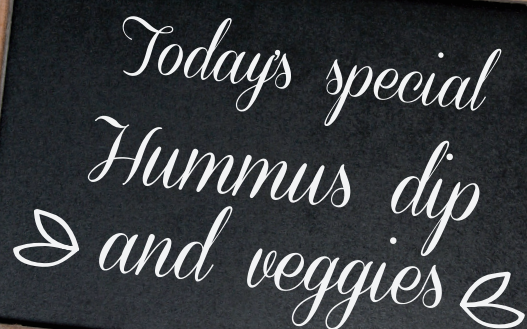 Today's special
Hummus dip
and veggies